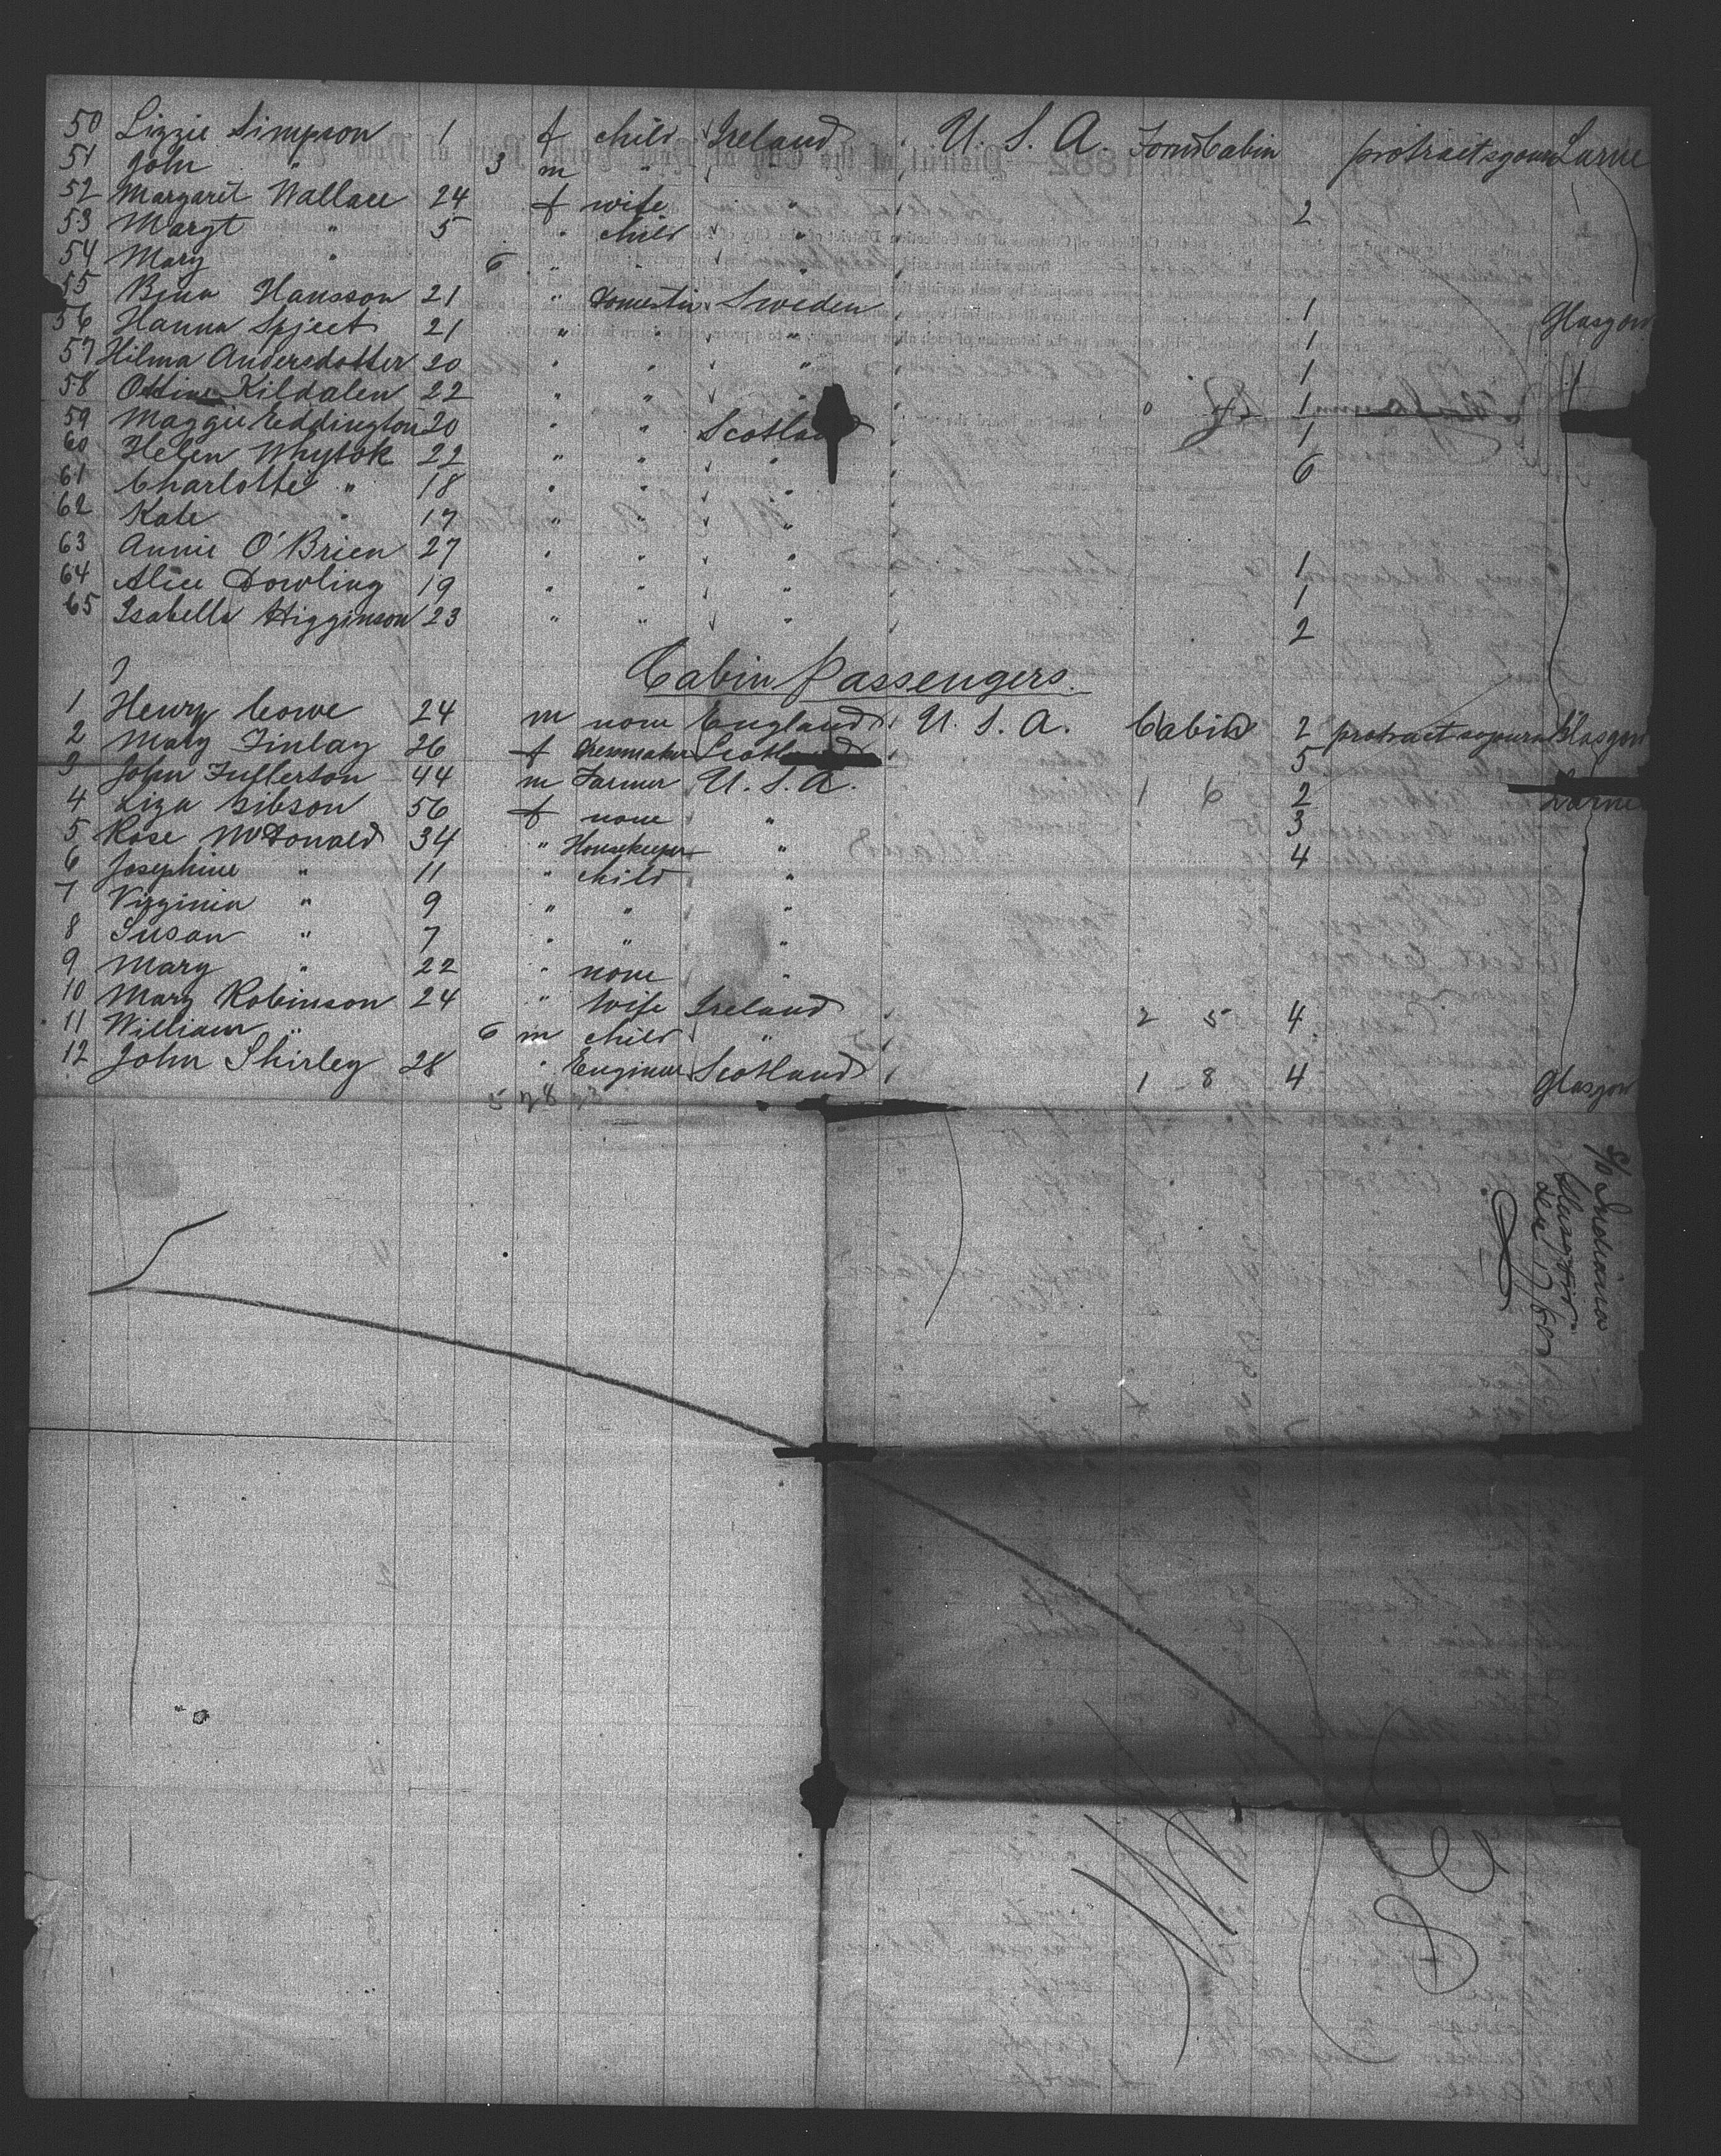 50 Lizzie Simpson 1 f child Ireland U. S. A. Forwd Cabin protract sojourn Larne
51 John " 3 m " "
52 Margaret Wallace 24 f wife " 2
53 Margt " 5 " child "
54 Mary " 6 " " "
55 Bina Hansson 21 " Domestic Sweden 1 Glasgow
56 Hanna 21 " " " 1
57 Hilma Andersdotter 20 " " " 1
58 Kildalen 22 " " " 1
59 Maggie Eddington 20 " " Scotland 1
60 Helen Whytok 22 " " " 6
61 Charlotte " 18 " " "
62 Kate " 17 " " "
63 Annie O'Brien 27 " " " 1
64 Alice Dowling 19 " " " 1
65 Isabella Higginson 23 " " " 2
Cabin Passengers.
1 Henry Cowe 24 m none England U. S. A. Cabin 2 protract sojourn Glasgow
2 Mary Finlay 26 f Dressmaker Scotland 5
3 John Fullerton 44 m Farmer U. S. A. 1 6 2 Larne
4 Liza Gibson 56 f none " 3
5 Rose McDonald 34 " Housekeeper " 4
6 Josephine " 11 " child "
7 Virginia " 9 " " "
8 Susan " 7 " " "
9 Mary " 22 " none "
10 Mary Robinson 24 " Wife Ireland 2 5 4
11 William " 6 m child "
12 John Shirley 28 " Engineer Scotland 1 8 4 Glasgow
5 78 73
S/S Indiana
Glasgow